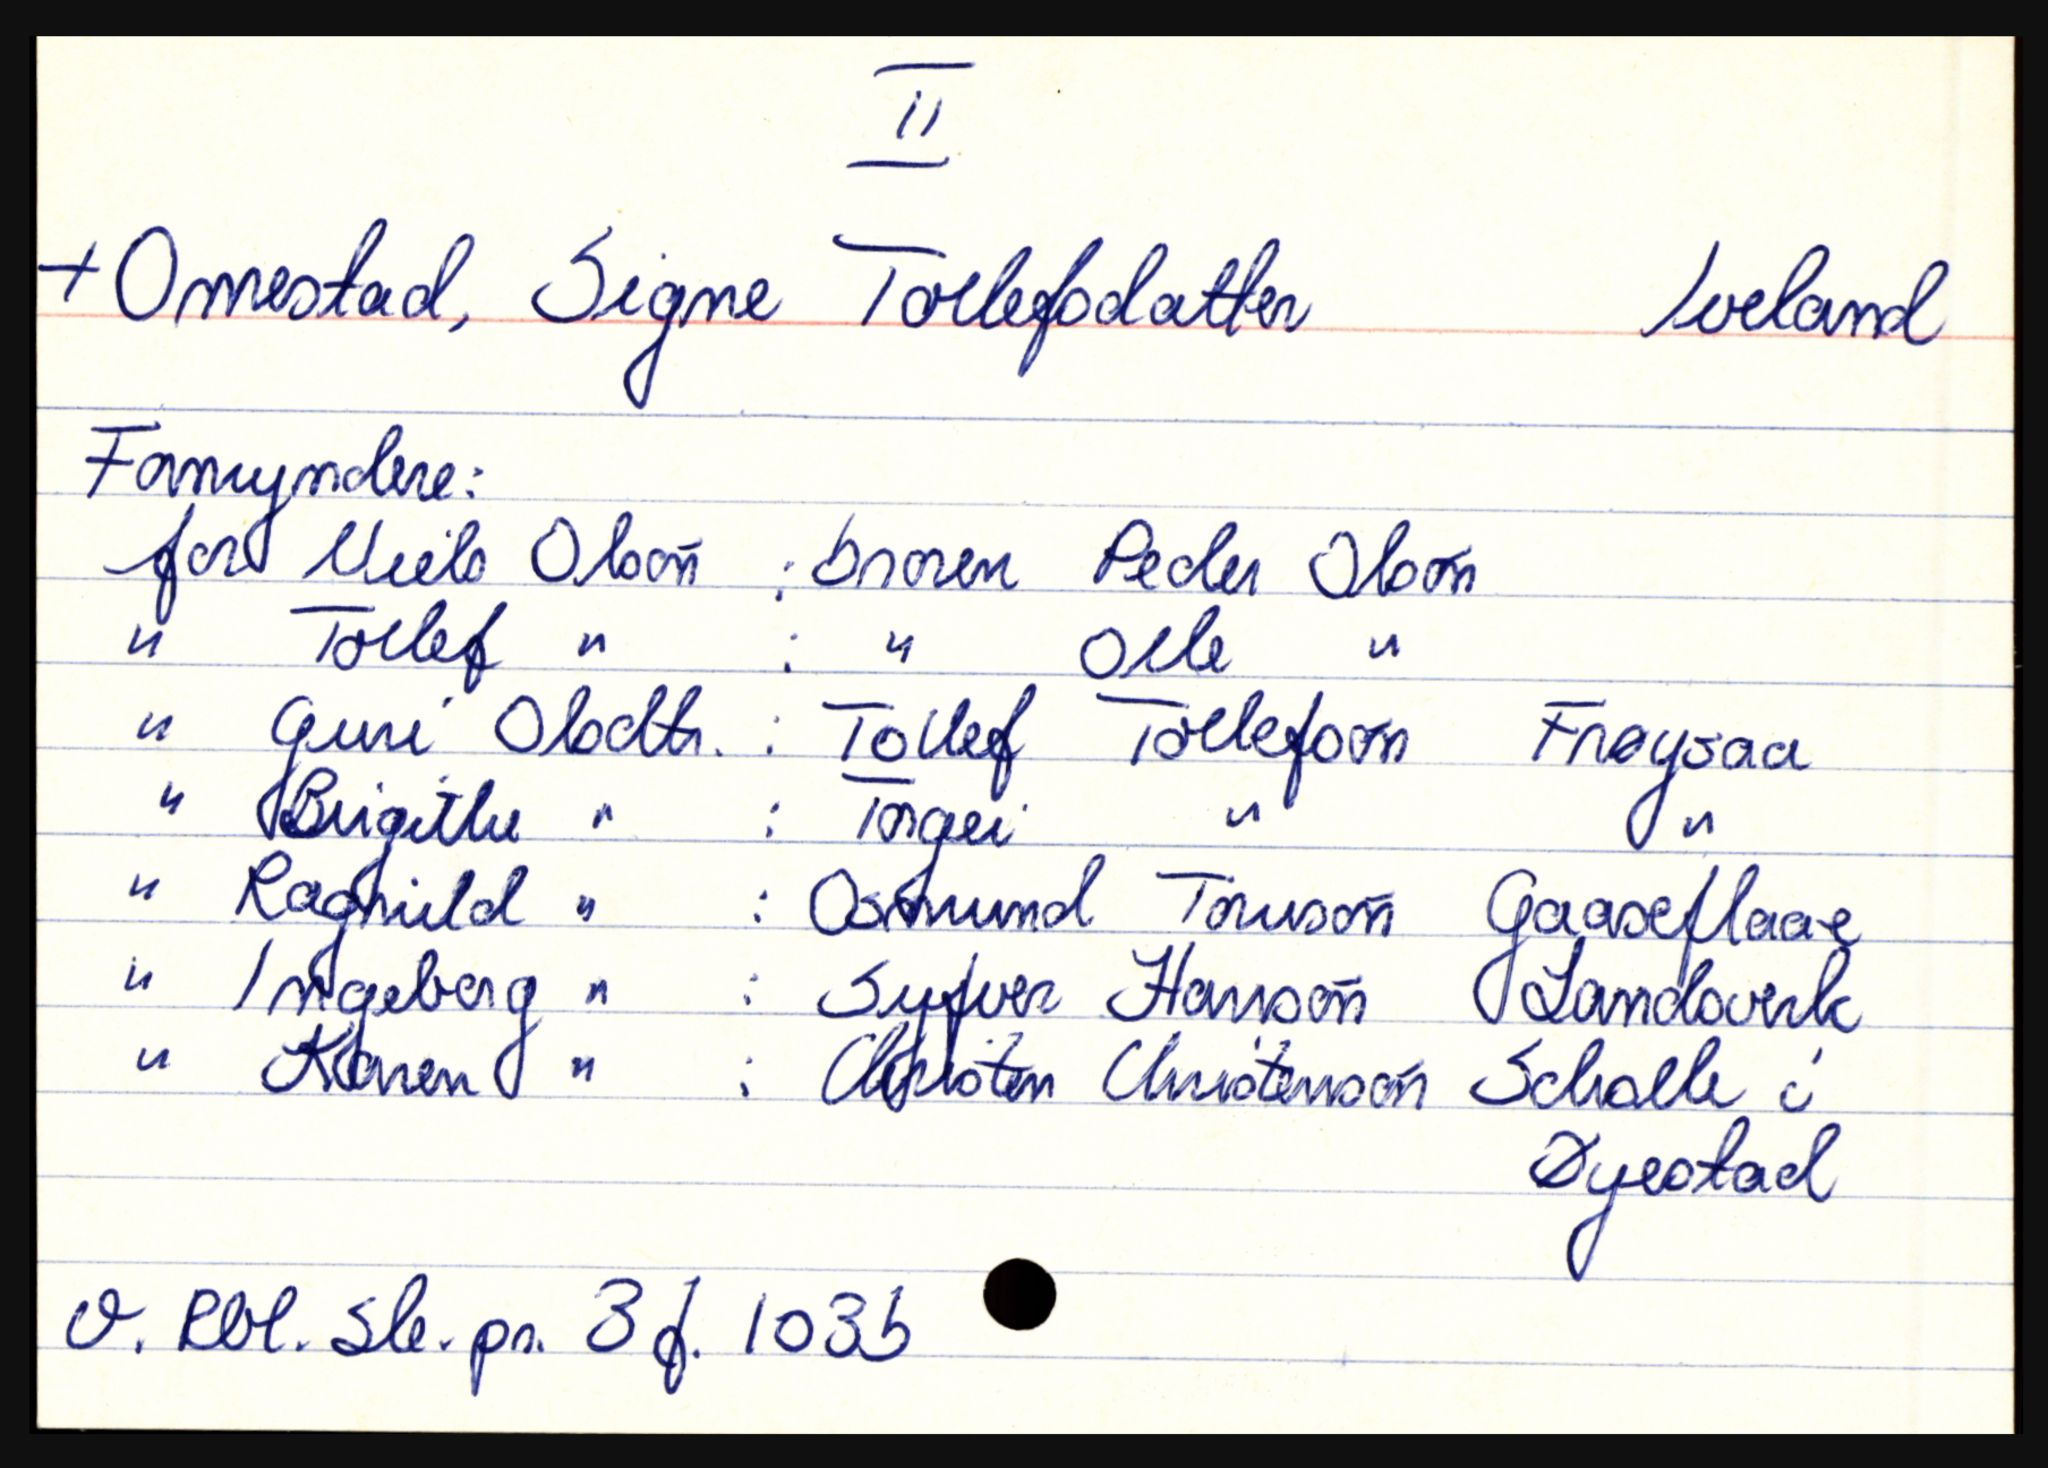 II
+ Omestad, Signe Tollefsdatter Iveland
Formyndere:
for Niels Olsøn : broren Peder Olsøn
" Tollef " : " Olle "
" Guri Olsdtr. : Tollef Tollefsøn Frøysaa
" Birgitte " : Torgei " "
" Ragnild " : Osmund Tomsøn Gaaseflaae
" Ingeborg " : Syfver Hansøn Landsverk
" Karen " : Christen Christensøn Scholle i
Øyestad
V. Rbl. Sk. pr. 3 f. 103b